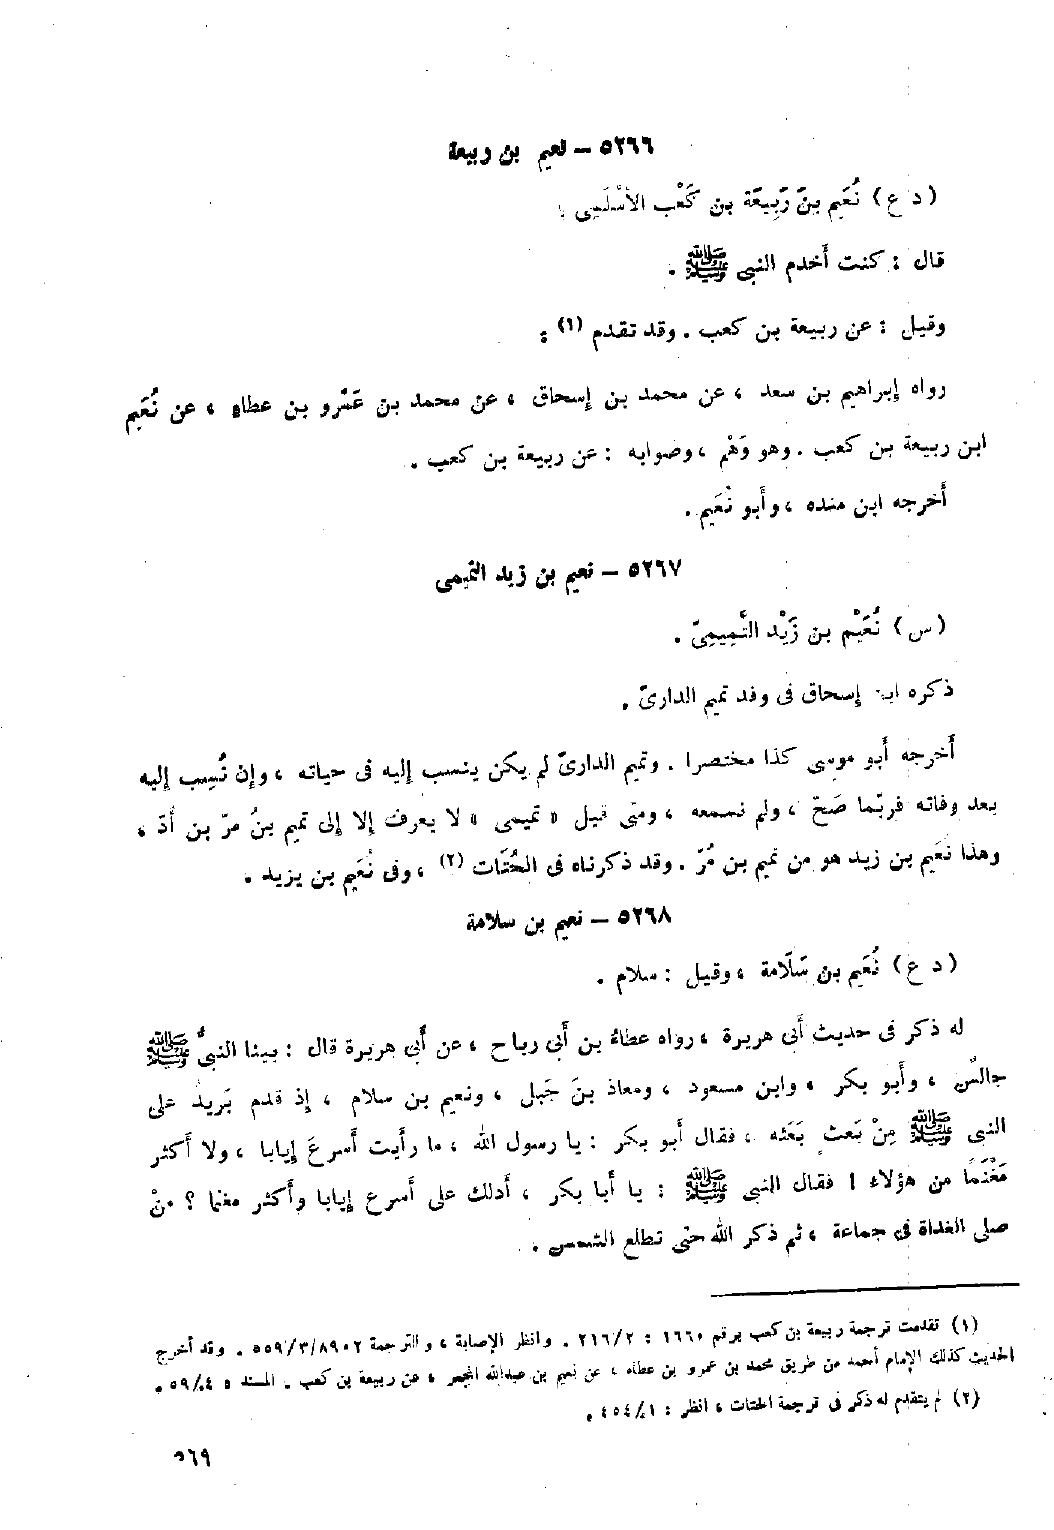 ٥٢٦٦ – نعيم بن ربيعة
(د ع) نُعَيم بنَ رَبِيعَة بن كَعْب الأسْلَمِى .
قال : كنت أخدم النبى ﷺ .
وقيل : عن ربيعة بن كعب . وقد تقدم (١) :
رواه إبراهيم بن سعد ، عن محمد بن إسحاق ، عن محمد بن عَمْرو بن عطاء ، عن نُعَيم
ابن ربيعة بن كعب . وهو وَهْم ، وصوابه : عن ربيعة بن كعب .
أخرجه ابن منده ، وأبو نُعَيم .
٥٢٦٧ – نعيم بن زيد التميمى
(س) نُعَيْم بن زَيْد التَّمِيمِىّ .
ذكره ابن إسحاق فى وفد تميم الدارىّ .
أخرجه أبو موسى كذا مختصرا . وتميم الدارىّ لم يكن ينسب إليه فى حياته ، وإن نُسِب إليه
بعد وفاته فربّما صَحّ ، ولم نسمعه ، ومتى قيل « تميمى » لا يعرف إلا إلى تميم بنُ مرّ بن أدّ ،
وهذا نُعَيم بن زيد هو من تميم بن مُرّ . وقد ذكرناه فى الحُتَات (٢) ، وفى نُعَيم بن يزيد .
٥٢٦٨ – نعيم بن سلامة
(د ع) نُعَيم بن سَلَّامة ، وقيل : سلام .
له ذكر فى حديث أبى هريرة ، رواه عطاءُ بن أبى رباح ، عن أبى هريرة قال : بينا النبىُّ ﷺ
جالسٌ ، وأبو بكر ، وابن مسعود ، ومعاذ بنَ جَبل ، ونعيم بن سلام ، إذ قدم بَريدٌ على
النبى ﷺ مِنْ بَعثٍ بَعَثه ، فقال أبو بكر : يا رسول الله ، ما رأيت أسرعَ إيابا ، ولا أكثر
مَغْنَمًا من هؤلاء ! فقال النبى ﷺ : يا أبا بكر ، أدلك على أسرع إيابا وأكثر مغنما ؟ منْ
صلى الغداة فى جماعة ، ثم ذكر الله حتى تطلع الشمس .
(١) تقدمت ترجمة ربيعة بن كعب برقم ١٦٦٠ : ٢١٦/٢ . وانظر الإصابة ، والترجمة ٨٩٠٢/٣/٥٥٩ . وقد أخرج
الحديث كذلك الإمام أحمد من طريق محمد بن عمرو بن عطاء ، عن نعيم بن عبدالله المجمر ، عن ربيعة بن كعب . المسند ٥٩/٤ .
(٢) لم يتقدم له ذكر فى ترجمة الحتات ، انظر : ٤٥٤/١ .
٥٦٩